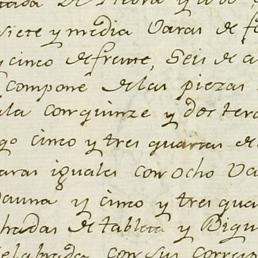 de Piedra y
siete y media varas de f
y cinco de frente, Seis de a
compone de las piezas
la con quinze y dos terc
go cinco y tres quartas d
aras iguales con ocho va
dauna y cinco y tres qua
hadas de tableta y Bigu
labrada con sus corresp